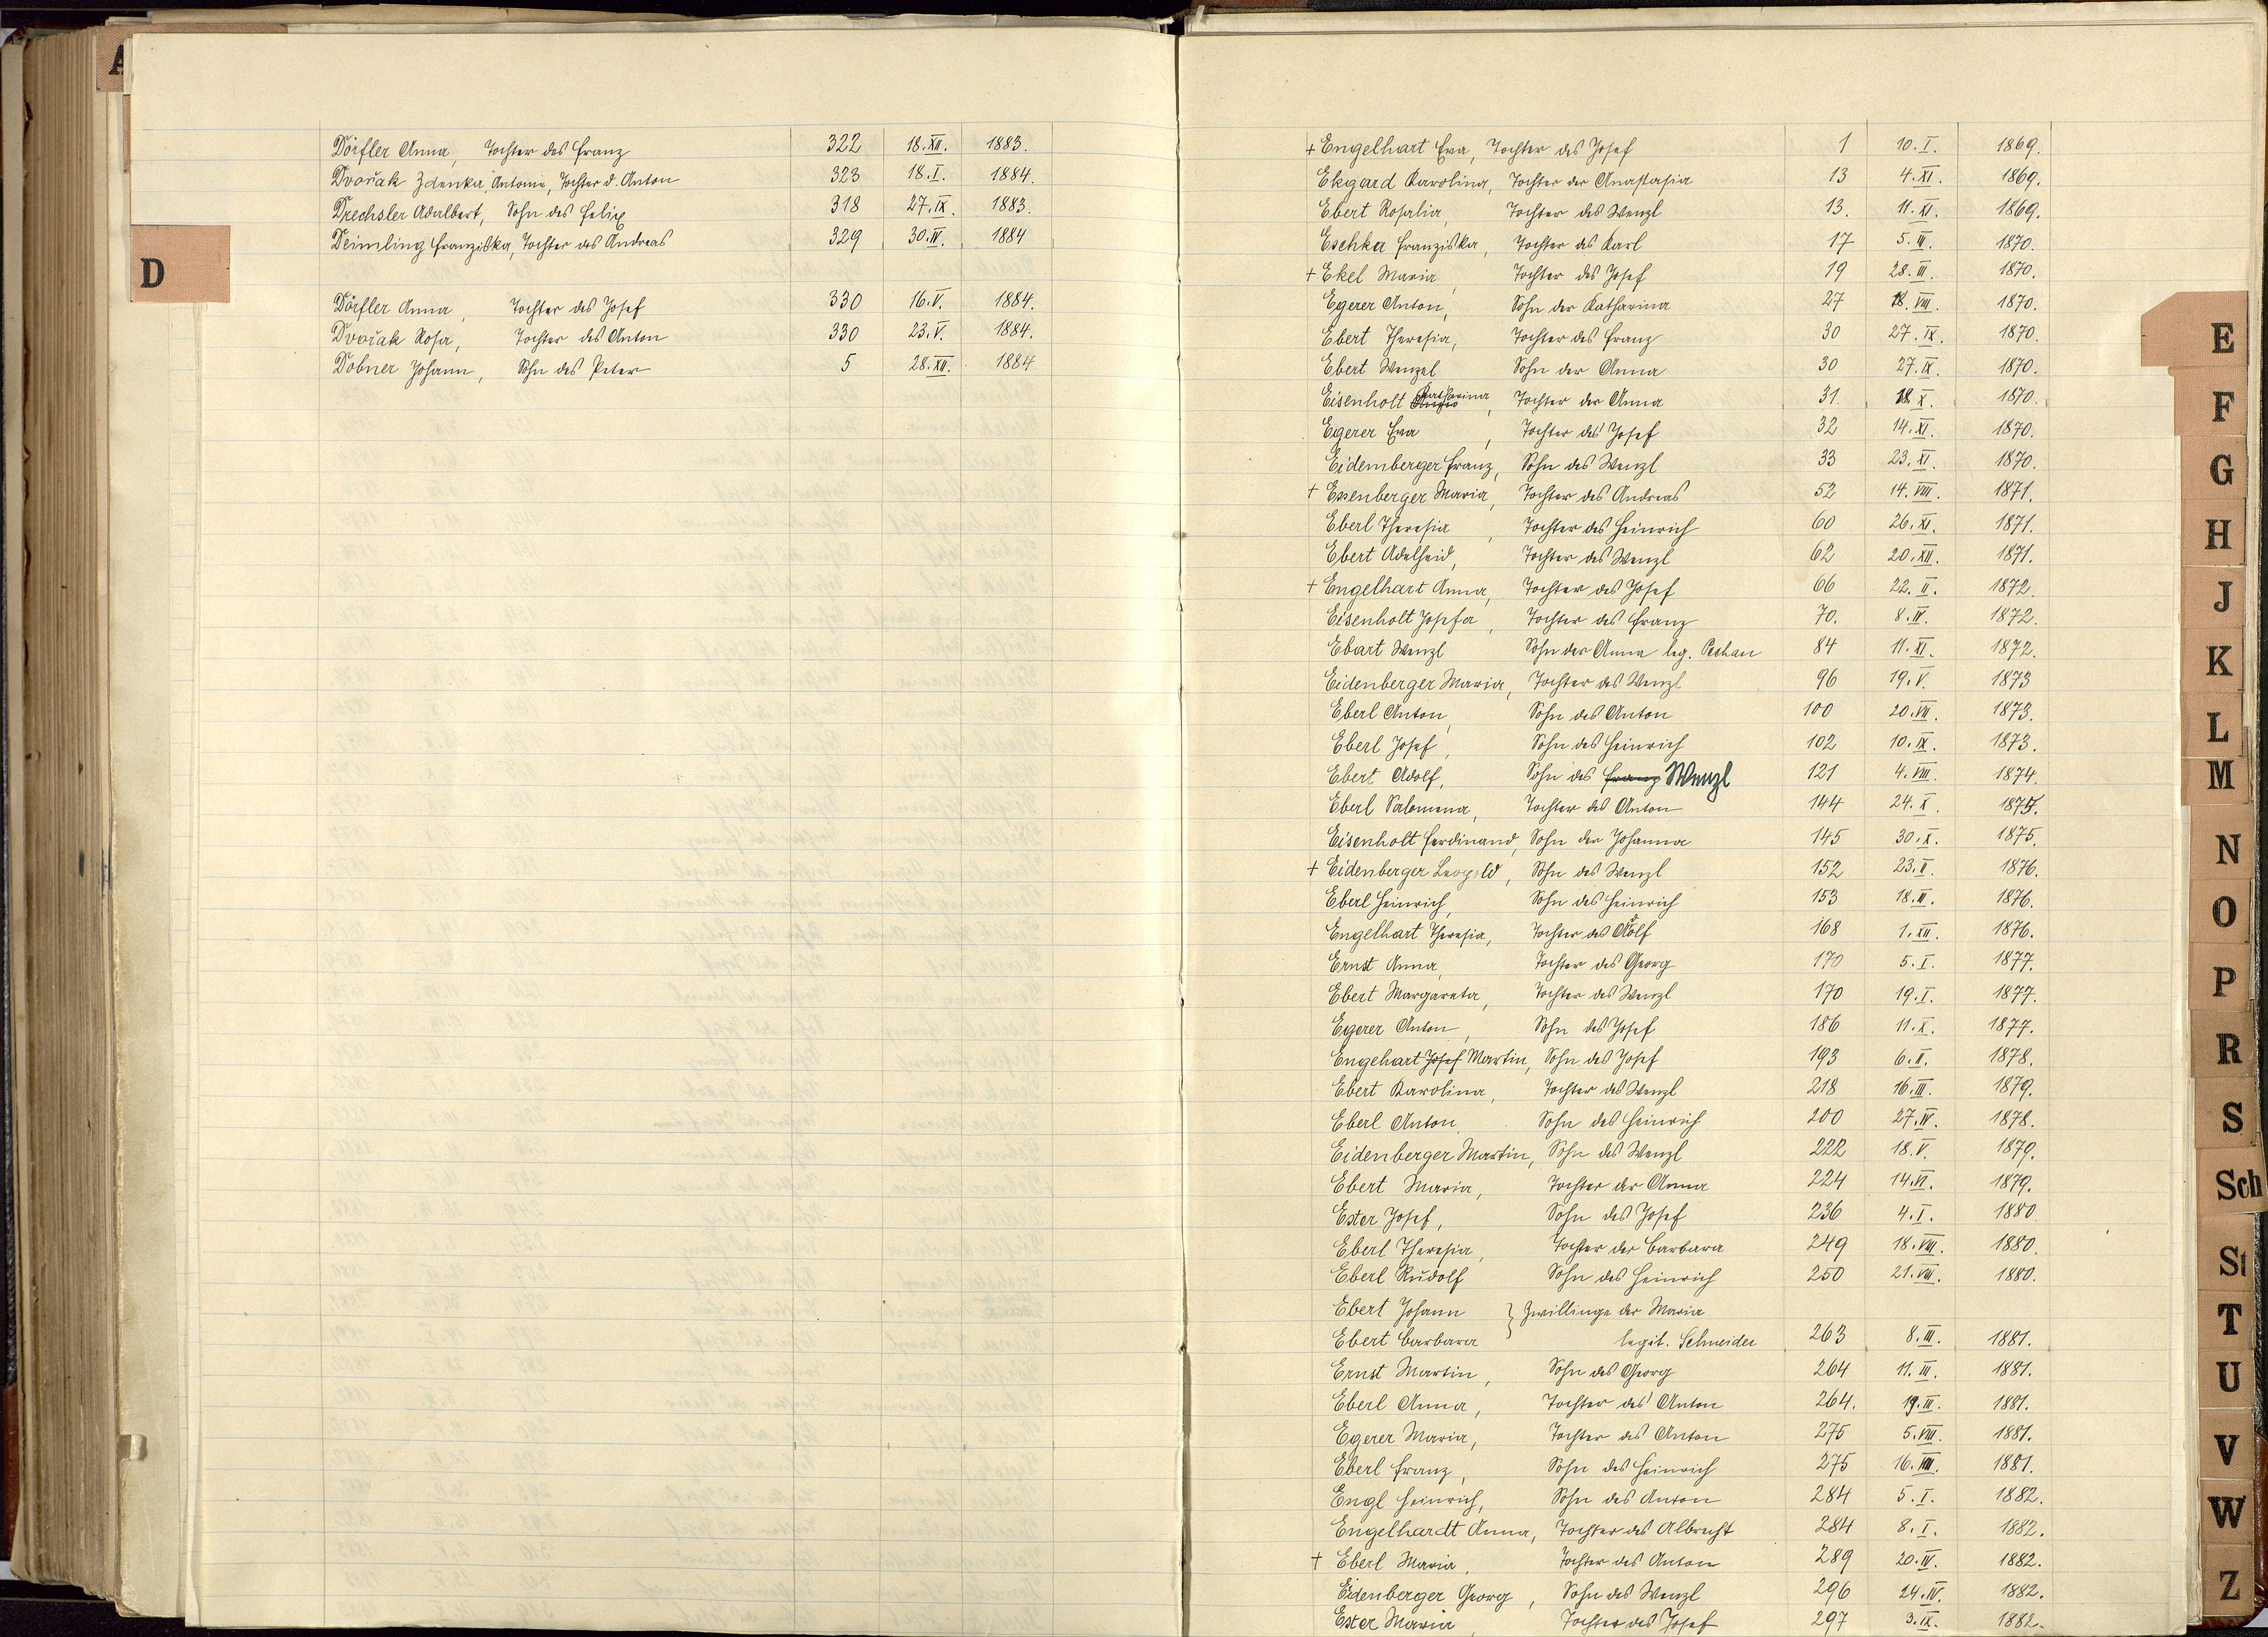 A
Dörfler Anna, Tochter des Franz 322 18.XII. 1883.
Dvořak Zdenka, Antonie, Tochter d. Anton 323 18.I. 1884.
Drechsler Adalbert, Sohn des Felix 318 27.IX. 1883.
Deimling Franziska, Tochter des Andreas 329 30.IV. 1884
D
Dörfler Anna, Tochter des Josef 330 16.V. 1884.
Dvořak Rosa, Tochter des Anton 330 23.V. 1884.
Dobner Johann, Sohn des Peter 5 28.XII. 1884
+ Engelhart Eva, Tochter des Josef 1 10.I. 1869.
Ekgard Karolina, Tochter der Anastasia 13 4.XI. 1869.
Ebert Rosalia, Tochter des Wenzl 13. 11.XI. 1869.
Eschka Franziska, Tochter des Karl 17 5.III. 1870.
+ Ekel Maria, Tochter des Josef 19 28.III. 1870.
Egerer Anton, Sohn der Katharina 27 18.VIII. 1870.
Ebert Theresia, Tochter des Franz 30 27.IX. 1870.
Ebert Wenzel Sohn der Anna 30 27.IX. 1870.
Eisenholt Katharina, Tochter der Anna 31. 18.X. 1870.
Egerer Eva, Tochter des Josef 32 14.XI. 1870.
Eidemberger Franz, Sohn des Wenzl 33 23.XI. 1870.
+ Essenberger Maria, Tochter des Andreas 52 14.VIII. 1871.
Eberl Theresia, Tochter des Heinrich 60 26.XI. 1871.
Ebert Adelheid, Tochter des Wenzl 62 20.XII. 1871.
+ Engelhart Anna, Tochter des Josef 66 22.II. 1872.
Eisenholt Josefa, Tochter des Franz 70. 8.IV. 1872.
Ebart Wenzl Sohn der Anna leg. Pechan 84 11.XI. 1872.
Eidenberger Maria, Tochter des Wenzl 96 19.V. 1873
Eberl Anton, Sohn des Anton 100 20.VII. 1873.
Eberl Josef, Sohn des Heinrich 102 10.IX. 1873.
Ebert Adolf, Sohn des Franz Wenzl 121 4.VIII. 1874.
Eberl Salomena, Tochter des Anton 144 24.X. 1875.
Eisenholt Ferdinand, Sohn der Johanna 145 30.X. 1875.
+ Eidenberger Leopold, Sohn des Wenzl 152 23.II. 1876.
Eberl Heinrich, Sohn des Heinrich 153 18.III. 1876.
Engelhart Theresia, Tochter des Adolf 168 1.XII. 1876.
Ernst Anna, Tochter des Georg 170 5.I. 1877.
Ebert Margareta, Tochter des Wenzl 170 19.I. 1877.
Egerer Anton, Sohn des Josef 186 11.X. 1877.
Engehart Josef Martin, Sohn des Josef 193 6.II. 1878.
Ebert Karolina, Tochter des Wenzl 218 16.III. 1879.
Eberl Anton, Sohn des Heinrich 200 27.IV. 1878.
Eidenberger Martin, Sohn des Wenzl 222 18.V. 1879.
Ebert Maria, Tochter der Anna 224 14.VI. 1879.
Ester Josef, Sohn des Josef 236 4.I. 1880.
Eberl Theresia, Tochter der Barbara 249 18.VIII. 1880.
Eberl Rudolf Sohn des Heinrich 250 21.VIII. 1880.
Ebert Johann } Zwillinge der Maria
Ebert Barbara legit. Schneider 263 8.III. 1881.
Ernst Martin, Sohn des Georg 264 11.III. 1881.
Eberl Anna, Tochter des Anton 264. 19.III. 1881.
Egerer Maria, Tochter des Anton 275 5.VIII. 1881.
Eberl Franz, Sohn des Heinrich 275 16.VIII. 1881.
Engl Heinrich, Sohn des Anton 284 5.I. 1882.
Engelhardt Anna, Tochter des Albrecht 284 8.I. 1882.
+ Eberl Maria, Tochter des Anton 289 20.IV. 1882.
Eidenberger Georg, Sohn des Wenzl 296 24.IV. 1882.
Ester Maria, Tochter des Josef 297 3.IX. 1882.
E
F
G
H
J
K
L
M
N
O
P
R
S
Sch
St
T
U
V
W
Z